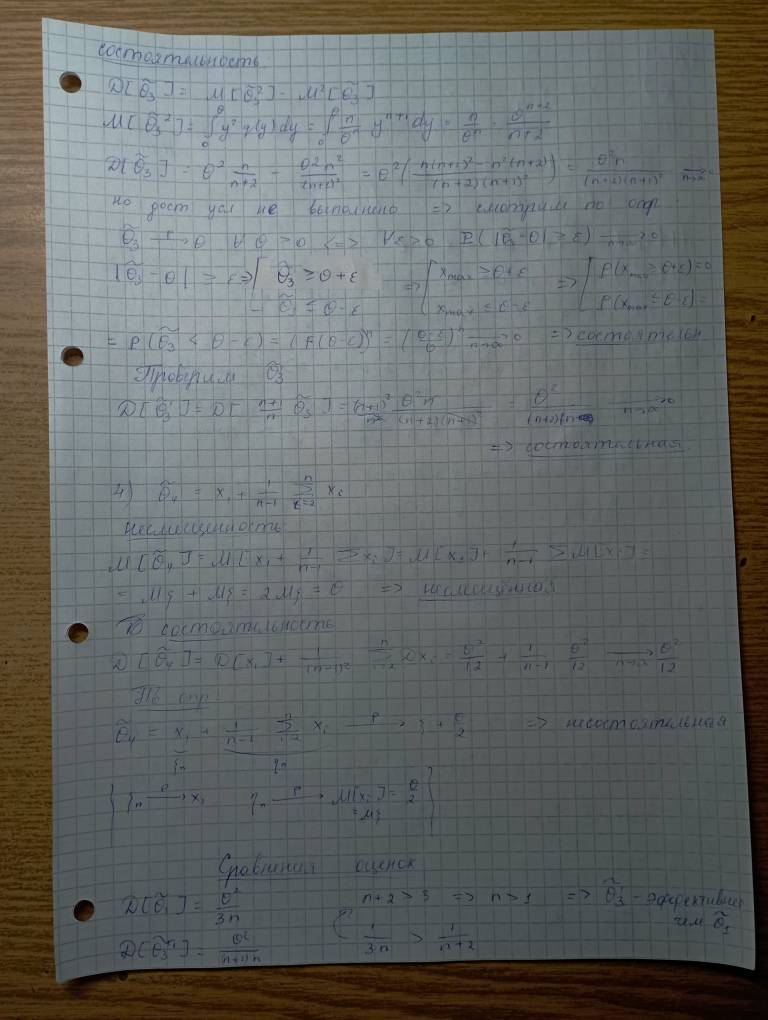 состоятельность
D[θ̃₃] = M[θ̃₃²] - M²[θ̃₃]
M[θ̃₃²] = ∫₀^θ y² g(y) dy = ∫₀^θ n/θⁿ y^{n+1} dy = n/θⁿ · θ^{n+2}/(n+2)
D[θ̃₃] = θ² n/(n+2) - θ²n²/(n+1)² = θ² (n(n+1)² - n²(n+2))/((n+2)(n+1)²) = θ²n/((n+2)(n+1)²) →_{n→∞} 0
но дост усл не выполнено => смотрим по опр
θ̃₃ →^P θ ∀ θ > 0 <=> ∀ε > 0 P(|θ̃₃ - θ| ≥ ε) →_{n→∞} 0
|θ̃₃ - θ| ≥ ε => [ θ̃₃ ≥ θ + ε ; θ̃₃ ≤ θ - ε => [ x_max ≥ θ + ε ; x_max ≤ θ - ε => [ P(x_max ≥ θ + ε) = 0 ; P(x_max ≤ θ - ε) =
= P(θ̃₃ < θ - ε) = (F(θ-ε))ⁿ = ((θ-ε)/θ)ⁿ →_{n→∞} 0 => состоятельн.
Проверим θ̃₃'
D[θ̃₃'] = D[(n+1)/n θ̃₃] = (n+1)²/n² θ²n/((n+2)(n+1)²) = θ²/((n+2)n) →_{n→∞} 0
=> состоятельная.
4) θ̃₄ = x₁ + 1/(n-1) Σ_{i=2}^n xᵢ
Несмещенность
M[θ̃₄] = M[x₁ + 1/(n-1) Σxᵢ] = M[x₁] + 1/(n-1) Σ M[xᵢ] =
= Mξ + Mξ = 2Mξ = θ => несмещенная
состоятельность
D[θ̃₄] = D[x₁] + 1/(n-1)² Σ_{i=2}^n Dxᵢ = θ²/12 + 1/(n-1) θ²/12 →_{n→∞} θ²/12
По опр
θ̃₄ = x₁ + 1/(n-1) Σ_{i=2}^n xᵢ →^P ξ + θ/2 => несостоятельная
ξₙ ηₙ
{ ξₙ →^P x₁ ηₙ →^P M[xᵢ] = θ/2 }
= Mξ
Сравнения оценок
D[θ̃₁] = θ²/3n n+2 > 3 => n > 1 => θ̃₃' - эффективнее
чем θ̃₁
D[θ̃₃'] = θ²/((n+2)n) 1/3n > 1/(n+2)